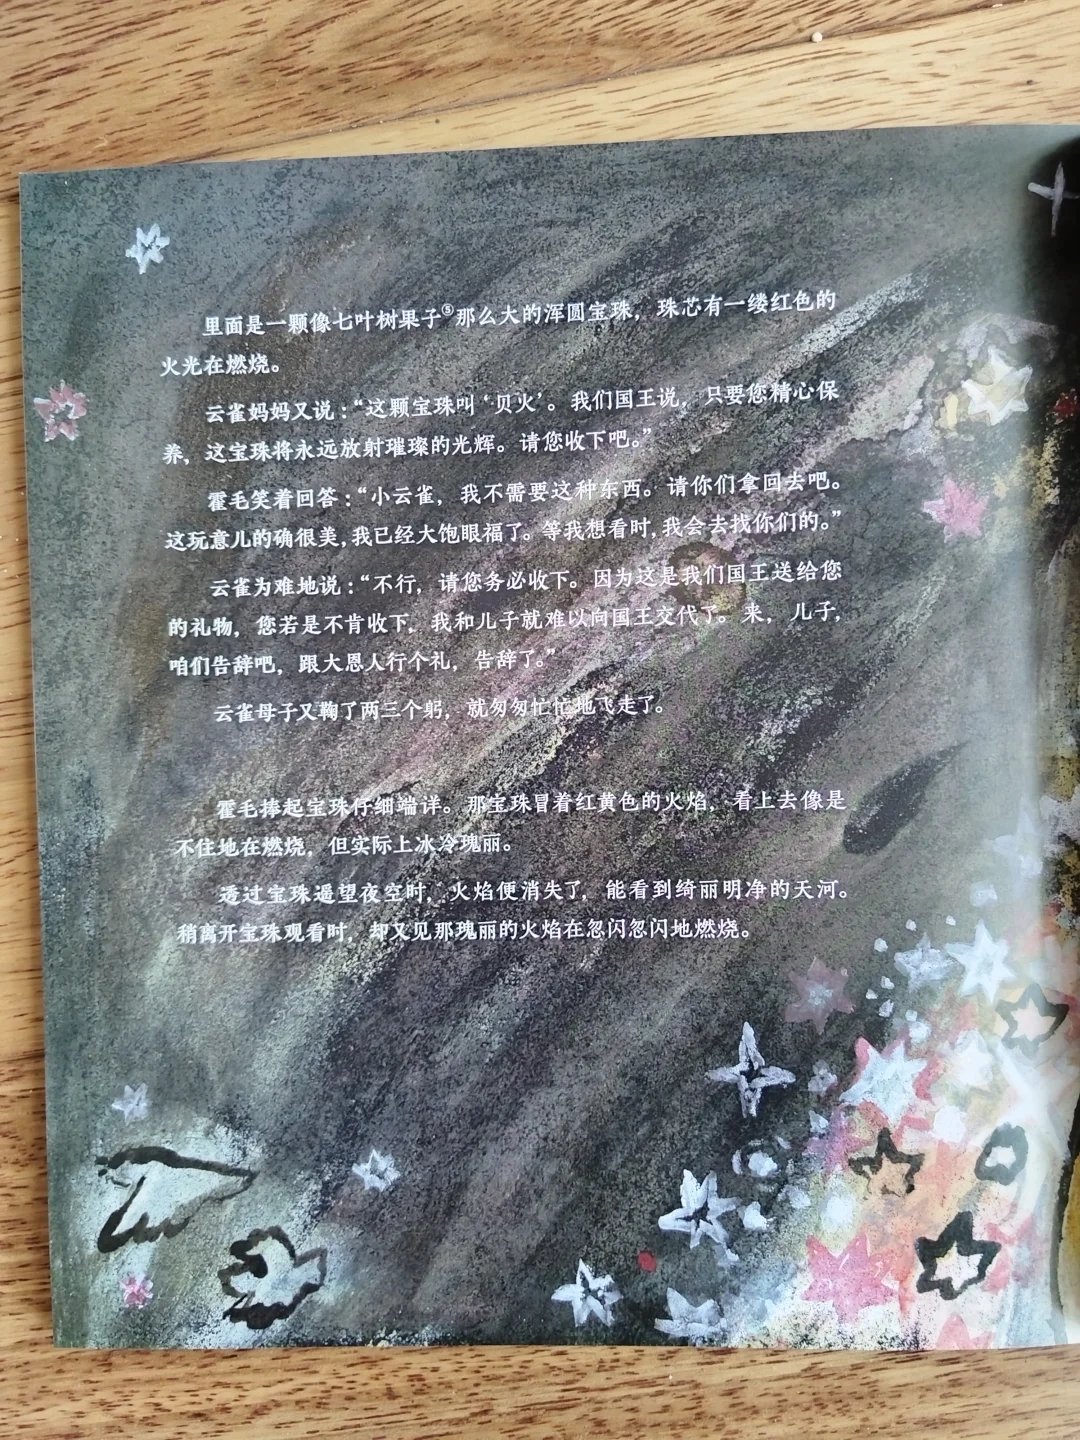 里面是一颗像七叶树果子⑤那么大的浑圆宝珠，珠芯有一缕红色的
火光在燃烧。
云雀妈妈又说：“这颗宝珠叫‘贝火’。我们国王说，只要您精心保
养，这宝珠将永远放射璀璨的光辉。请您收下吧。”
霍毛笑着回答：“小云雀，我不需要这种东西。请你们拿回去吧。
这玩意儿的确很美，我已经大饱眼福了。等我想看时，我会去找你们的。”
云雀为难地说：“不行，请您务必收下。因为这是我们国王送给您
的礼物，您若是不肯收下，我和儿子就难以向国王交代了。来，儿子，
咱们告辞吧，跟大恩人行个礼，告辞了。”
云雀母子又鞠了两三个躬，就匆匆忙忙地飞走了。
霍毛捧起宝珠仔细端详。那宝珠冒着红黄色的火焰，看上去像是
不住地在燃烧，但实际上冰冷瑰丽。
透过宝珠遥望夜空时，火焰便消失了，能看到绮丽明净的天河。
稍离开宝珠观看时，却又见那瑰丽的火焰在忽闪忽闪地燃烧。